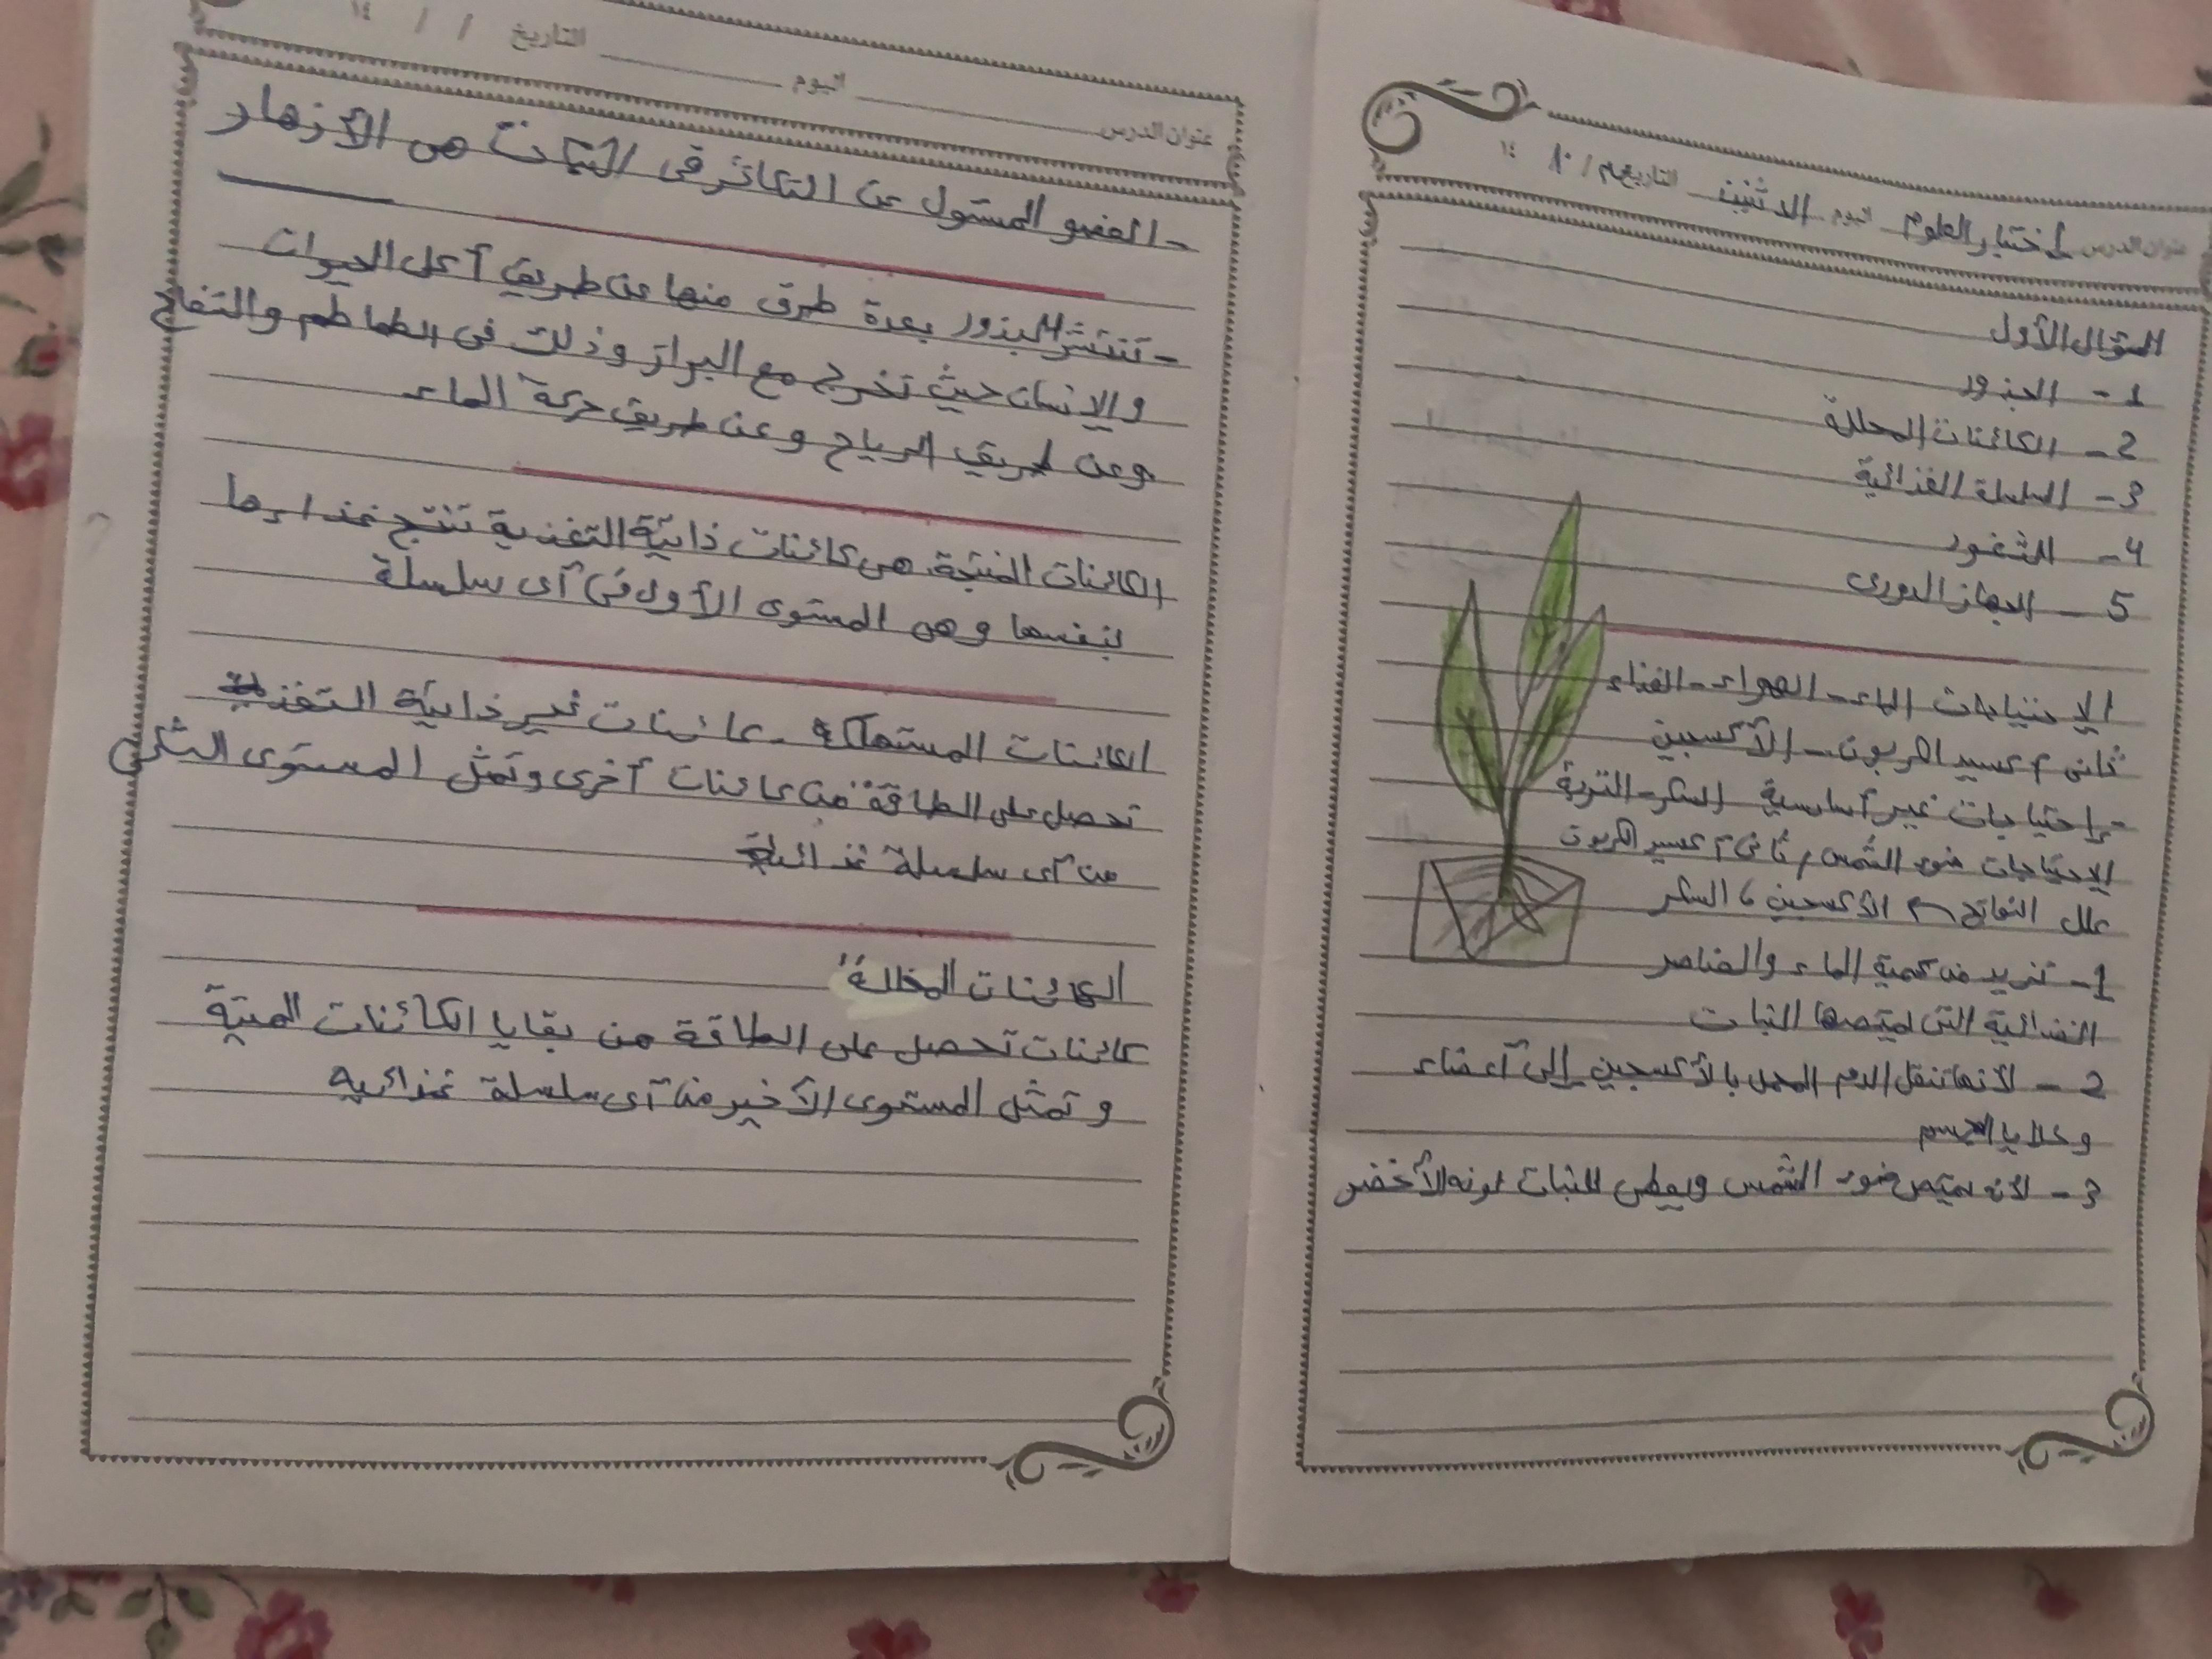 عنوان الدرس إختبار العلوم اليوم الاثنين التاريخ / ١٠ ١٤
السؤال الأول
1 - الجذور
2 - الكائنات المحللة
3 - السلسلة الغذائية
4 - الثغور
5 - الجهاز الدورى
الإحتياجات الماء - الهواء - الغذاء
ثانى أكسيد الكربون - الأكسجين
إحتياجات غير أساسية السكر - التربة
الإحتياجات ضوء الشمس، ثانى أكسيد الكربون
علل النواتج الأكسجين، السكر
1 - تزيد من كمية الماء والعناصر
الغذائية التى يمتصها النبات
2 - لأنها تنقل الدم المحمل بالأكسجين إلى أعضاء
وخلايا الجسم
3 - لأنه يمتص ضوء الشمس ويعطى للنبات لونه الأخضر
عنوان الدرس اليوم التاريخ / / ١٤
- العضو المسئول عن التكاثر فى النبات هى الأزهار
- تنتشر البذور بعدة طرق منها عن طريق أكل الحيوان
والإنسان حيث تخرج مع البراز وذلك فى الطماطم والتفاح
وعن طريق الرياح وعن طريق حركة الماء
الكائنات المنتجة هى كائنات ذاتية التغذية تنتج غذاءها
بنفسها وهى المستوى الأول فى أى سلسلة
الكائنات المستهلكة - كائنات غير ذاتية التغذية
تحصل على الطاقة من كائنات أخرى وتمثل المستوى الثانى
من أى سلسلة غذائية
الكائنات المحللة
كائنات تحصل على الطاقة من بقايا الكائنات الميتة
وتمثل المستوى الأخير من أى سلسلة غذائيه